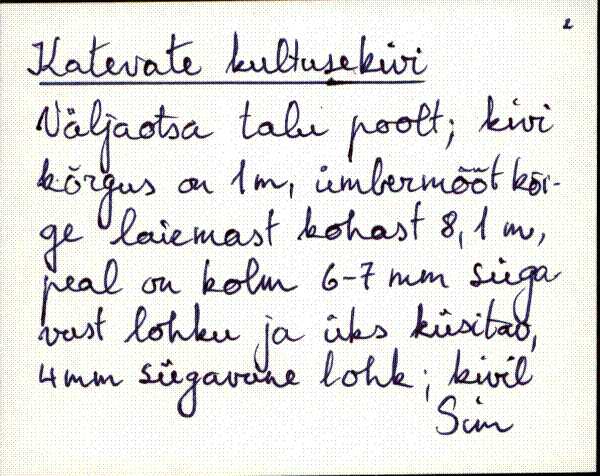 2
Katevate kultusekivi
Väljaotsa talu poolt; kivi
kõrgus on 1m, ümbermõõt kõi-
ge laiemast kohast 8,1 m,
peal on kolm 6-7 mm süga
vust lohku ja üks küsitav,
4mm sügavune lohk; kivil